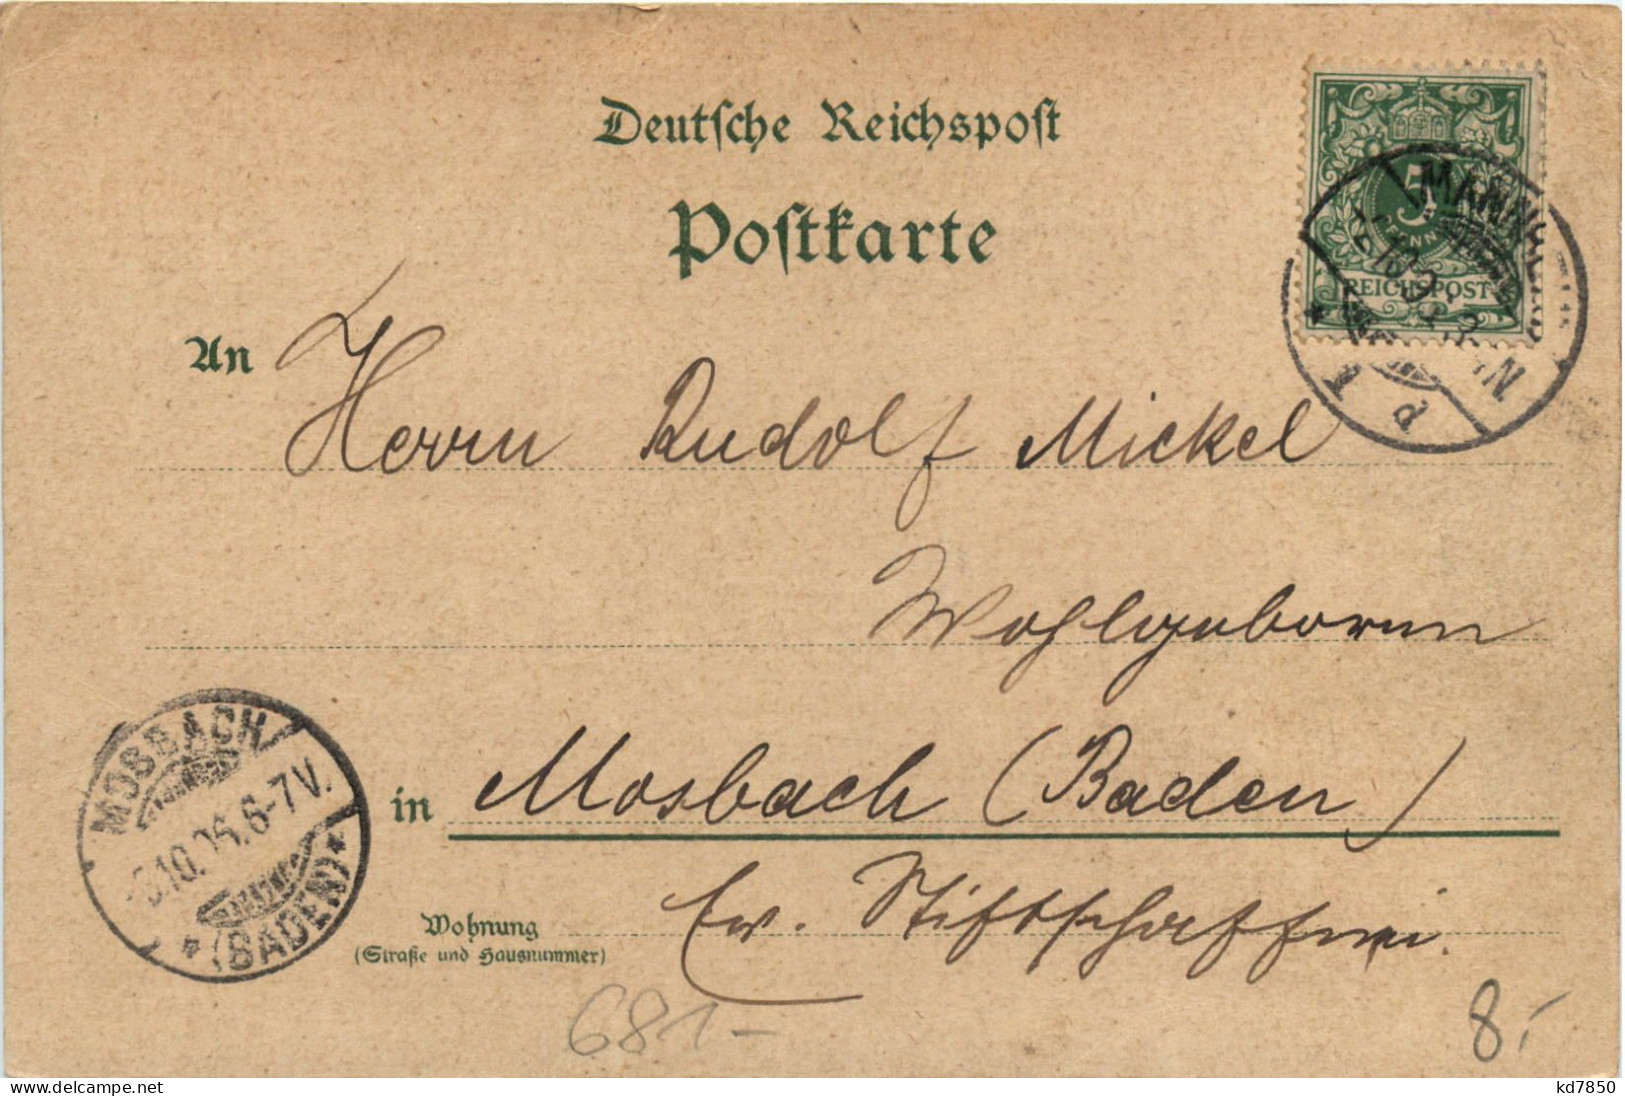 Deutsche Reichspost
Postkarte
5
PFENNIG
REICHSPOST
MANNHEIM
1
An Herrn Rudolf Mickel
Wohlgeboren
in Mosbach (Baden)
Wohnung
(Straße und Hausnummer)
Ev. Stiftschaffnei.
MOSBACH
10. 6-7V.
(BADEN)
681-
8,-
kd7850